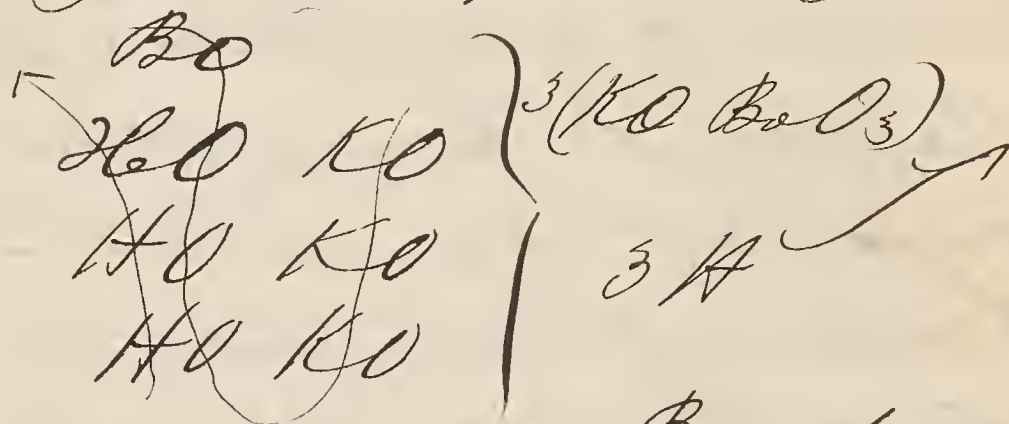 Bo
HO KO
HO KO
HO KO
3(KO BoO3)
3H